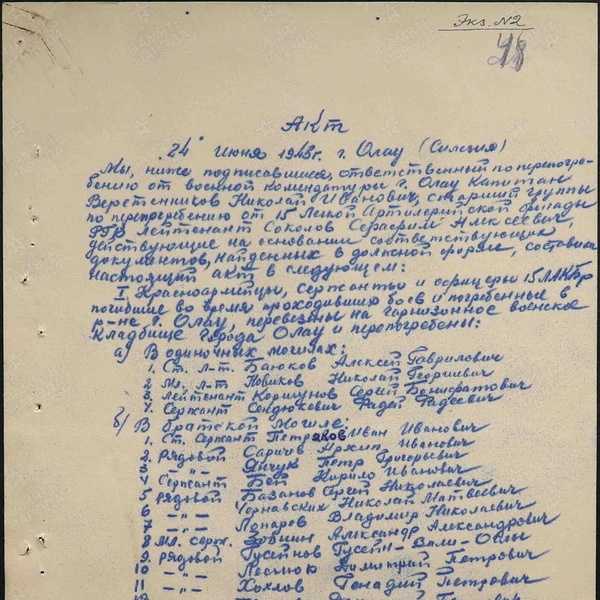 Экз. N2
48
Акт
"24" июня 1945г. г. Олау (Силезия)
Мы, ниже подписавшиеся, ответственный по перепогре-
бению от военной комендатуры г. Олау Капитан
Веретенников Николай Иванович, старший группы
по перегребению от 15 Легкой Артилерийской бригады
РГК Лейтенант Соколов Серафим Алексеевич,
действующие на основании соответствующих
документов, найденных в должной форме, составили
настоящий акт в следующем:
I. Красноармейцы, сержанты и офицеры 15 ЛАКбр
погибшие во время проходивших боев и погребенные в
р-не г. Олау, перевезены на гарнизонное воинское
кладбище города Олау и перепогребены:
а) В одиночных могилах:
1. Ст. л-т Баюков Алексей Гаврилович
2. Мл. л-т Новиков Николай Георгиевич
3. Лейтенант Коршунов Сергей
4. Сержант Сендюкевич Фадей Фадеевич
б) В братской могиле:
1. Ст. Сержант Петряков Иван Иванович
2. Рядовой Саричев Архип Иванович
3 -"- Янчук Петр Григорьевич
4 Сержант Бей Кирило Иванович
5 Рядовой Базанов Сергей Николаевич
6 -"- Чернавских Николай Матвеевич
7 -"- Понаров Владимир Николаевич
8 Мл. серж. Зобнин Александр Александрович
9. Рядовой Гусейнов Гусейн-Вали-Оглы
10 -"- Лесняк Дмитрий Петрович
11 -"- Хохлов Генадий Петрович